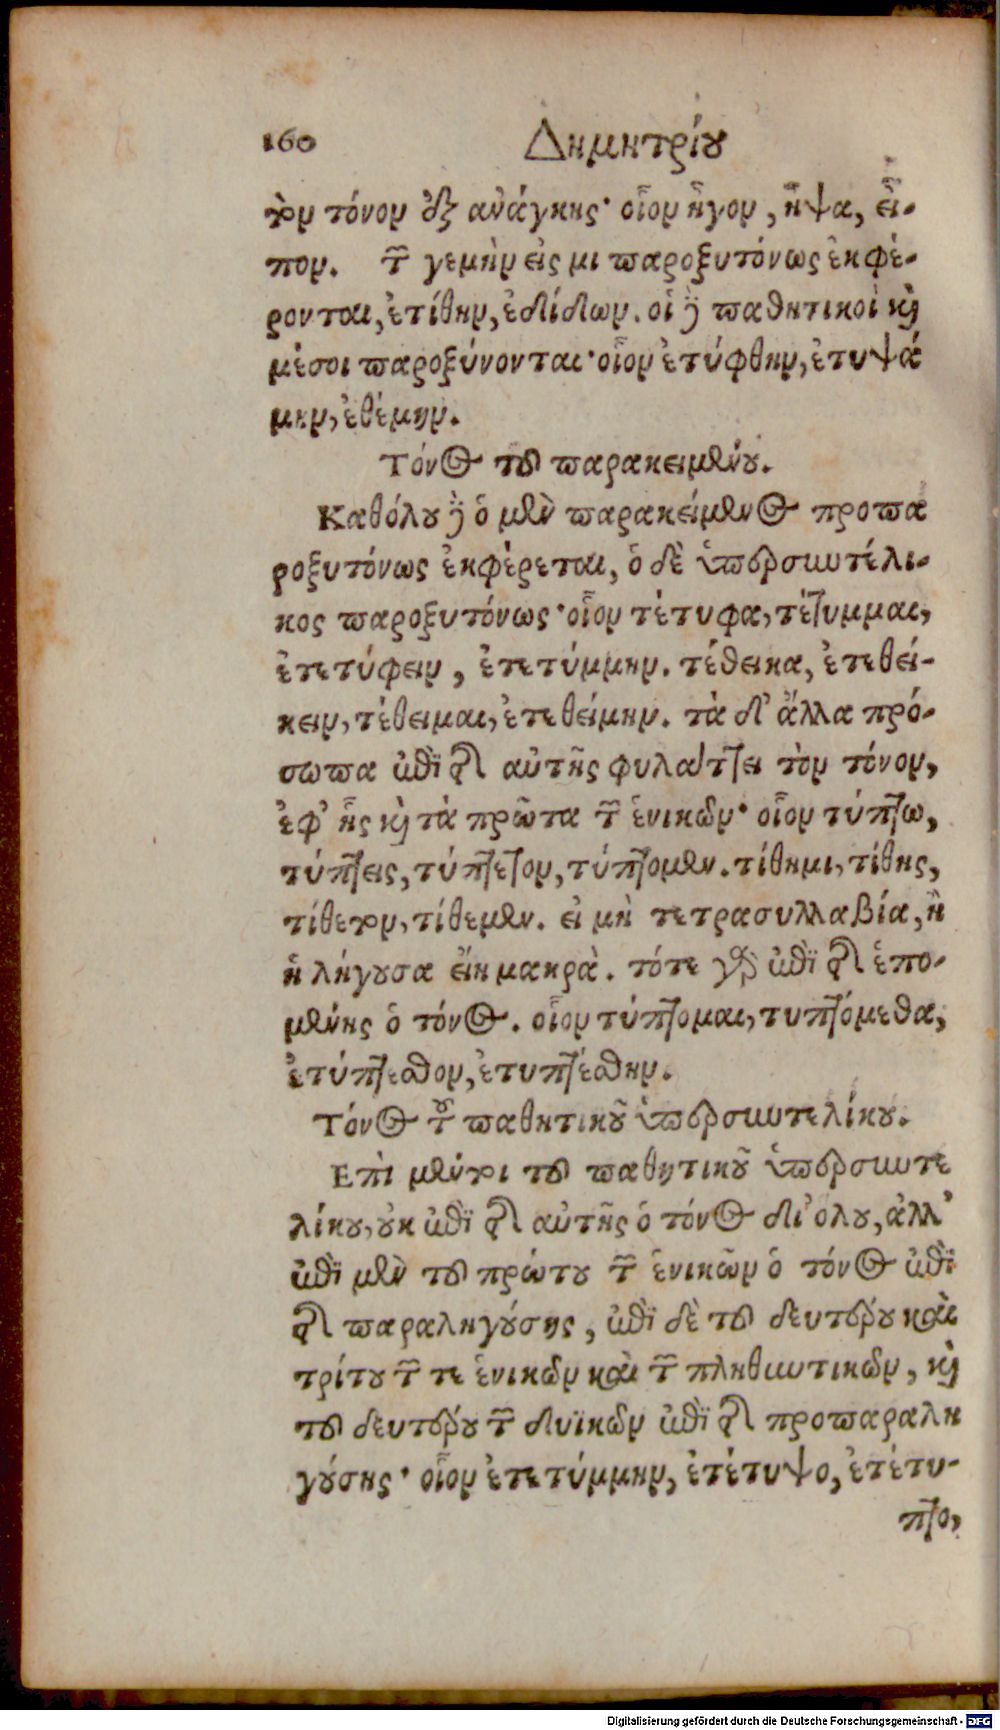 160 Δημητρίου
τὸν τόνον ἐξ ἀνάγκης· οἷον ἦγον, ἧψα, εἶ-
πον. τῶν γεμὴν εἰς μι παροξυτόνως ἐκφέ-
ρονται, ἐτίθην, ἐδίδων. οἱ δὲ παθητικοὶ καὶ
μέσοι παροξύνονται· οἷον ἐτύφθην, ἐτυψά
μην, ἐθέμην.
Τόνος τοῦ παρακειμένου.
Καθόλου δὲ ὁ μὲν παρακείμενος προπα
ροξυτόνως ἐκφέρεται, ὁ δὲ ὑπερσυντέλι-
κος παροξυτόνως· οἷον τέτυφα, τέτυμμαι,
ἐτετύφειν, ἐτετύμμην. τέθεικα, ἐτεθεί-
κειν, τέθειμαι, ἐτεθείμην. τὰ δ' ἄλλα πρό-
σωπα ἐπὶ τῆς αὐτῆς φυλάττει τὸν τόνον,
ἐφ' ἧς καὶ τὰ πρῶτα τῶν ἑνικῶν· οἷον τύπτω,
τύπτεις, τύπτετον, τύπτομεν. τίθημι, τίθης,
τίθετον, τίθεμεν. εἰ μὴ τετρασυλλαβία, ἢ
ἡ λήγουσα εἴη μακρὰ. τότε γὰρ ἐπὶ τῆς ἑπο-
μένης ὁ τόνος. οἷον τύπτομαι, τυπτόμεθα,
ἐτύπτεσθον, ἐτυπτέσθην.
Τόνος τοῦ παθητικοῦ ὑπερσυντελίκου.
Επὶ μέντοι τοῦ παθητικοῦ ὑπερσυντε
λίκου, οὐκ ἐπὶ τῆς αὐτῆς ὁ τόνος δι' ὅλου, ἀλλ'
ἐπὶ μὲν τοῦ πρώτου τῶν ἑνικῶν ὁ τόνος ἐπὶ
τῆς παραληγούσης, ἐπὶ δὲ τοῦ δευτέρου καὶ
τρίτου τῶν τε ἑνικῶν καὶ τῶν πληθυντικῶν, καὶ
τοῦ δευτέρου τῶν δυϊκῶν ἐπὶ τῆς προπαραλη
γούσης· οἷον ἐτετύμμην, ἐτέτυψο, ἐτέτυ-
πτο,
Digitalisierung gefördert durch die Deutsche Forschungsgemeinschaft - DFG